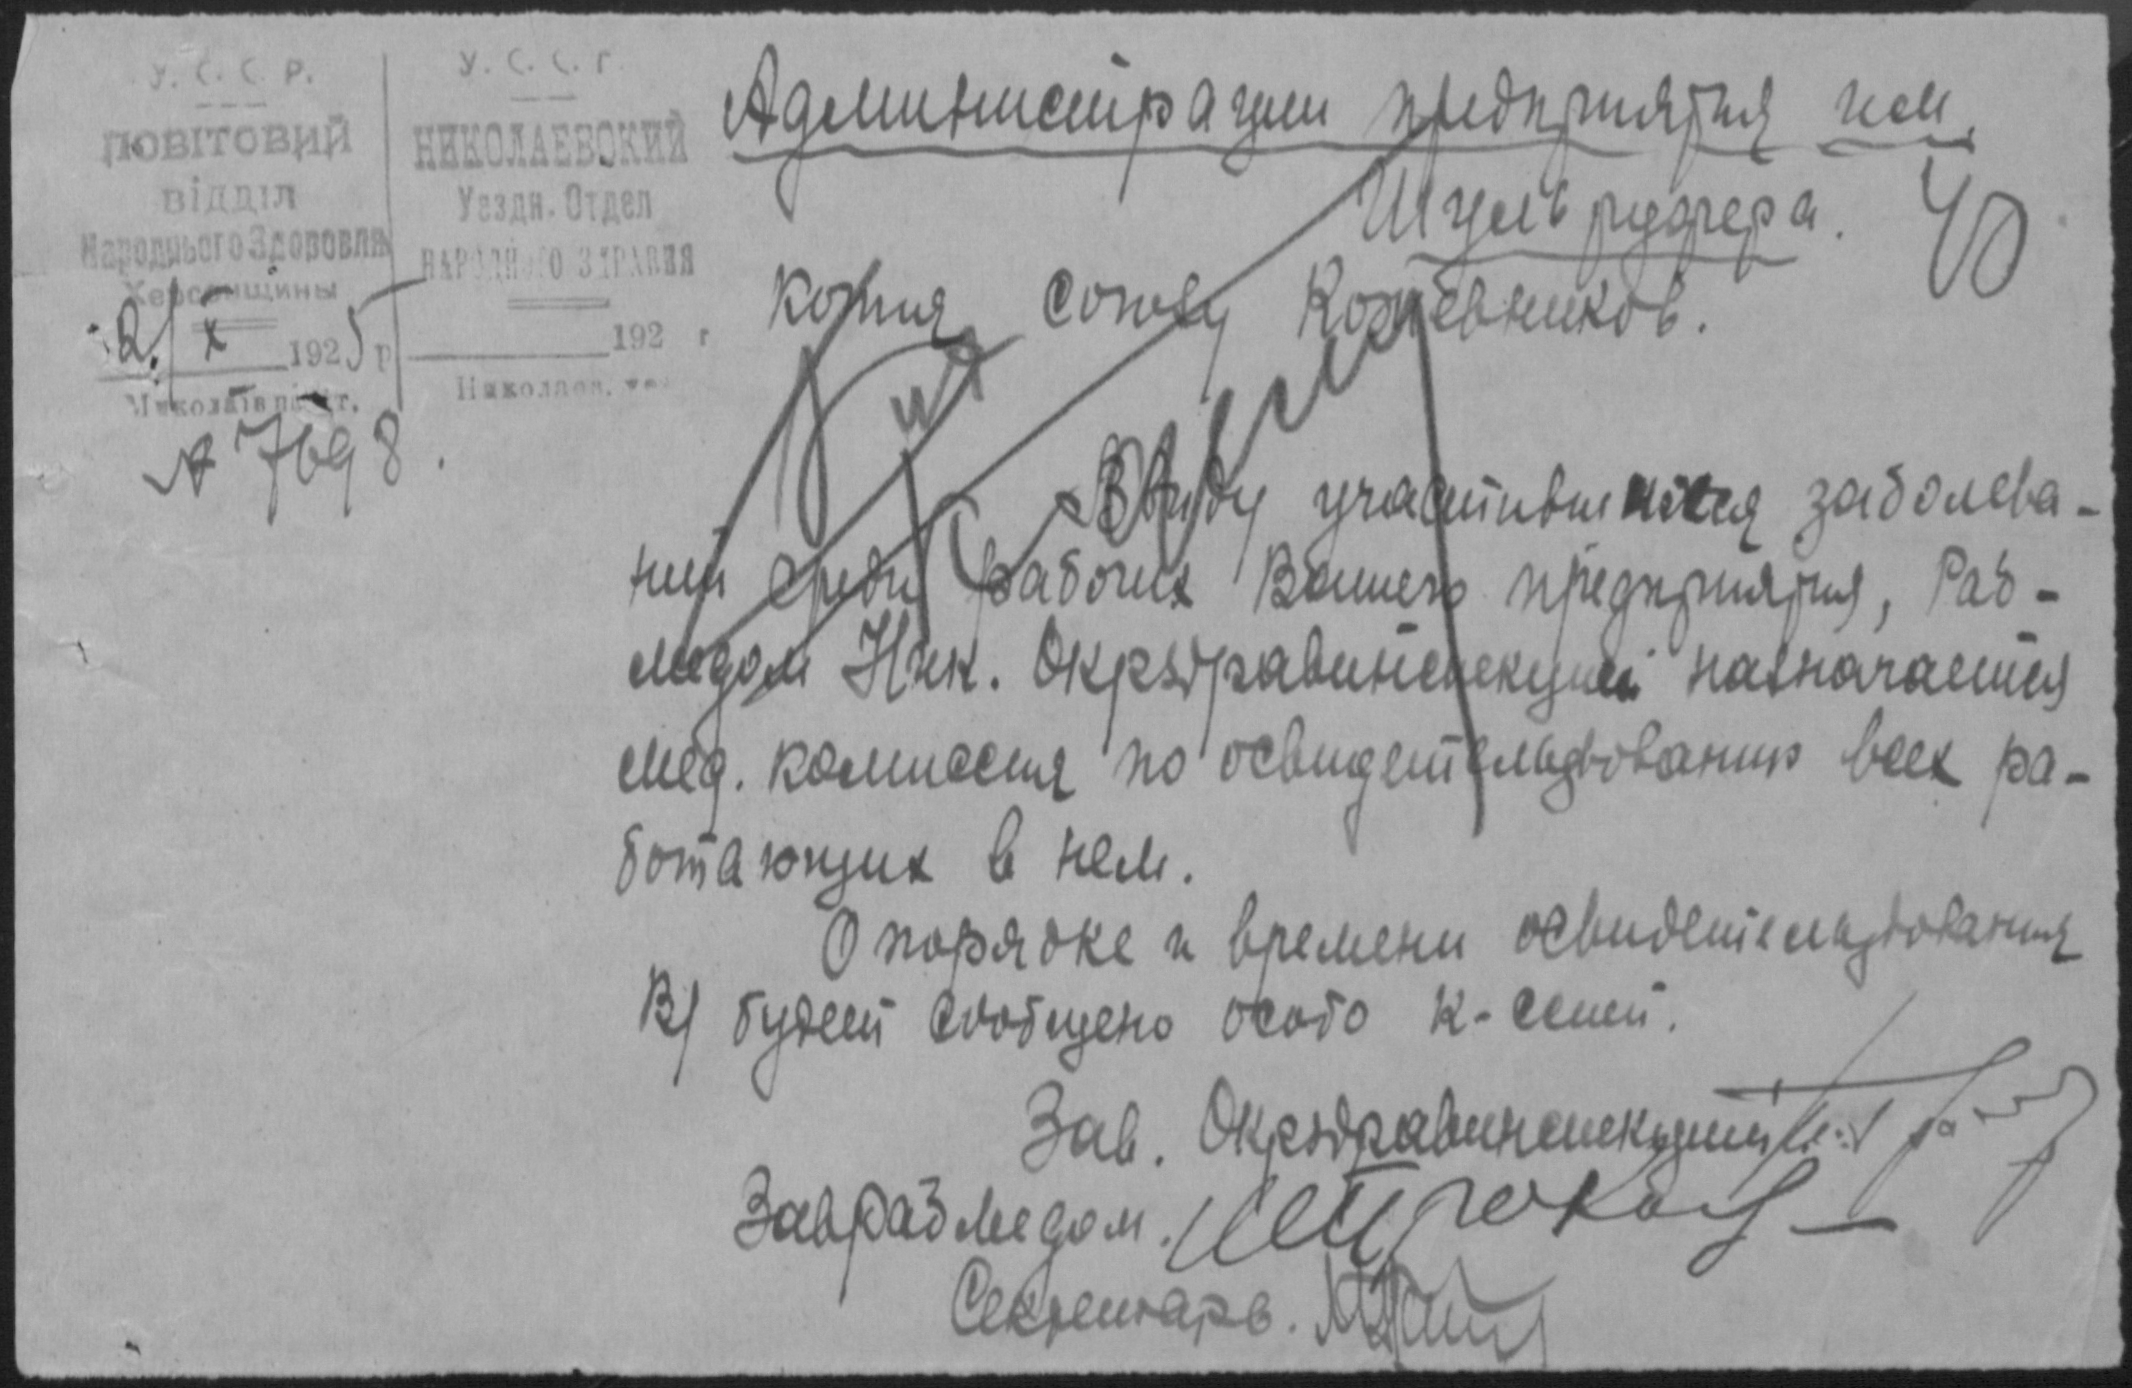 У. С. С. Р.
ПОВІТОВИЙ
ВІДДІЛ
Народнього Здоровля
Херсонщины
21 X 1925 р
Миколаїв
№ 7698.
У. С. С. Г.
НИКОЛАЕВСКИЙ
Уездн. Отдел
НАРОДНОГО ЗДРАВИЯ
192 г
Николаев,
Администрации предприятия им.
Шульруфера.
40
Копия Союзу Кожевников.
Ввиду участившихся заболева-
ний среди рабочих Вашего предприятия, Раб-
медом Ник. Окрздравинспекции назначается
мед. комиссия по освидетельствованию всех ра-
ботающих в нем.
О порядке и времени освидетельствования
будет сообщено особо
Зав. Окрздравинспекцией
Заврабмедом.
Секретарь.